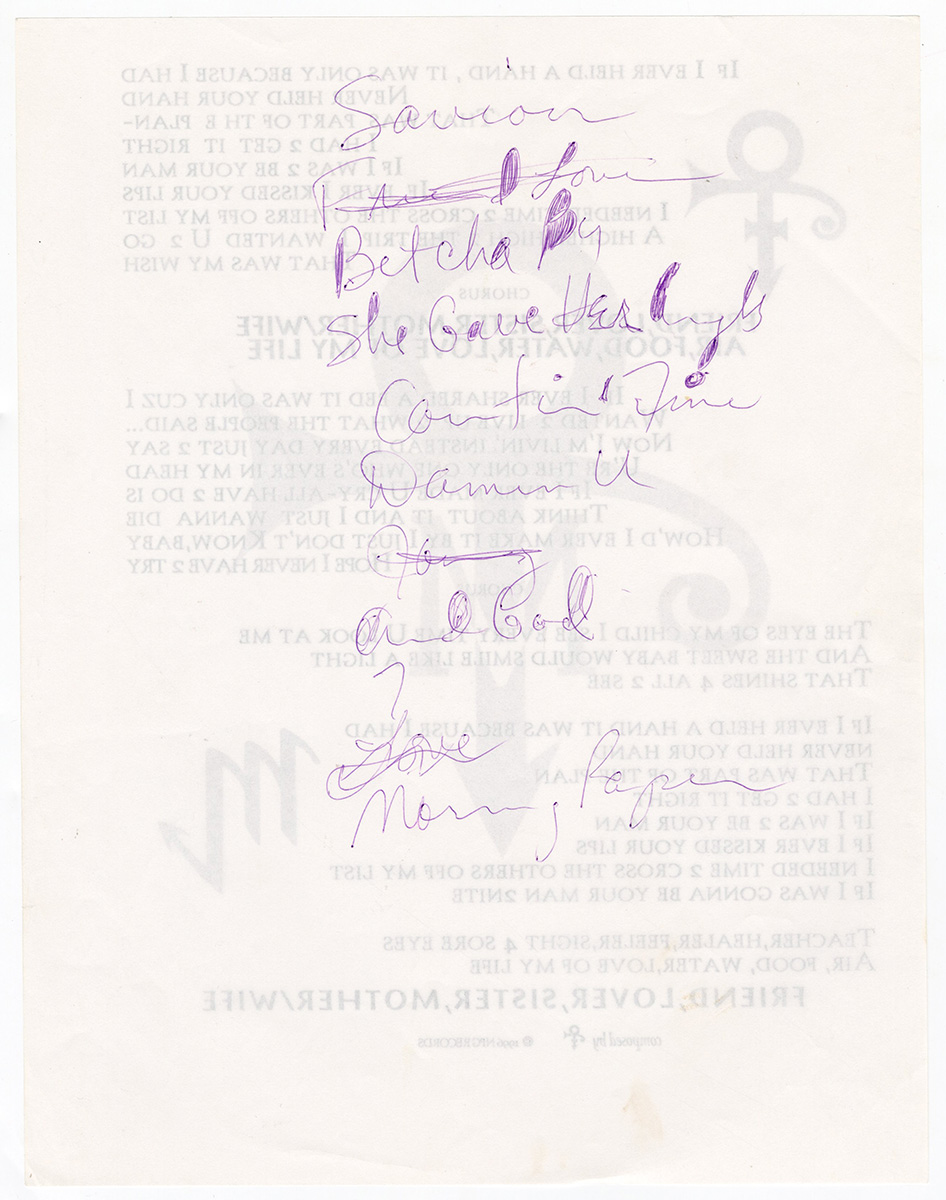 Saviour
Friend Lover
Betcha By
She Gave Her Angels
Courtin' Time
Damn U
And God
7
Love
Morning Papers
If I ever held a hand, it was only because I had
Never held your hand
That was part of the plan-
I had 2 get it right
If I was 2 be your man
If I ever kissed your lips
I needed time 2 cross the others off my list
A higher high, the trip I wanted U 2 go
That was my wish
CHORUS
FRIEND, LOVER, SISTER, MOTHER/WIFE
AIR, FOOD, WATER, LOVE OF MY LIFE
If I ever shared a bed it was only cuz I
Wanted 2 live up 2 what the people said...
Now I'm livin' instead every day just 2 say
U're the only one who's ever in my head
If I ever make U cry-all I have 2 do is
Think about it and I just wanna die
How'd I ever make it by I just don't know, baby
Hope I never have 2 try
CHORUS
The eyes of my child I see every time U look at me
And the sweet baby would smile like a light
That shines 4 all 2 see
If I ever held a hand it was because I had
never held your hand
That was part of the plan
I had 2 get it right
If I was 2 be your man
If I ever kissed your lips
I needed time 2 cross the others off my list
If I was gonna be your man 2nite
Teacher, healer, feeler, sight 4 sore eyes
Air, food, water, love of my life
FRIEND, LOVER, SISTER, MOTHER/WIFE
composed by
© 1996 NPG RECORDS